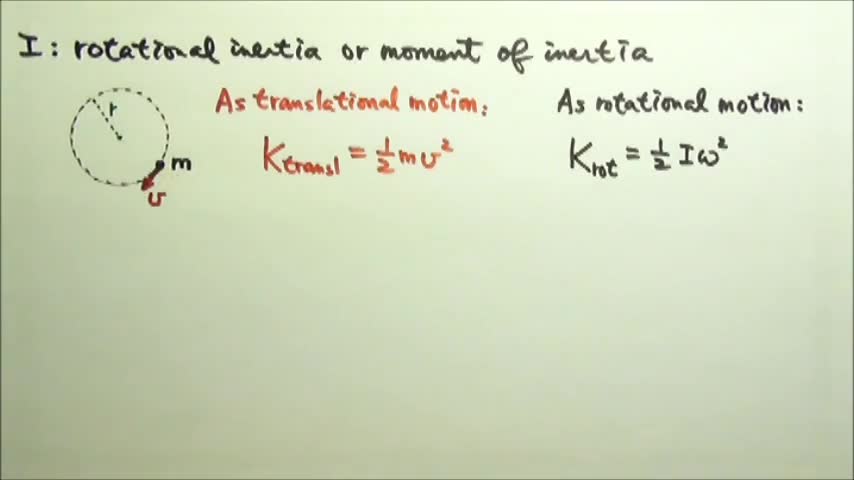 I: rotational inertia or moment of inertia
r
m
v
As translational motion:
K_transl = 1/2 m v²
As rotational motion:
K_rot = 1/2 I ω²